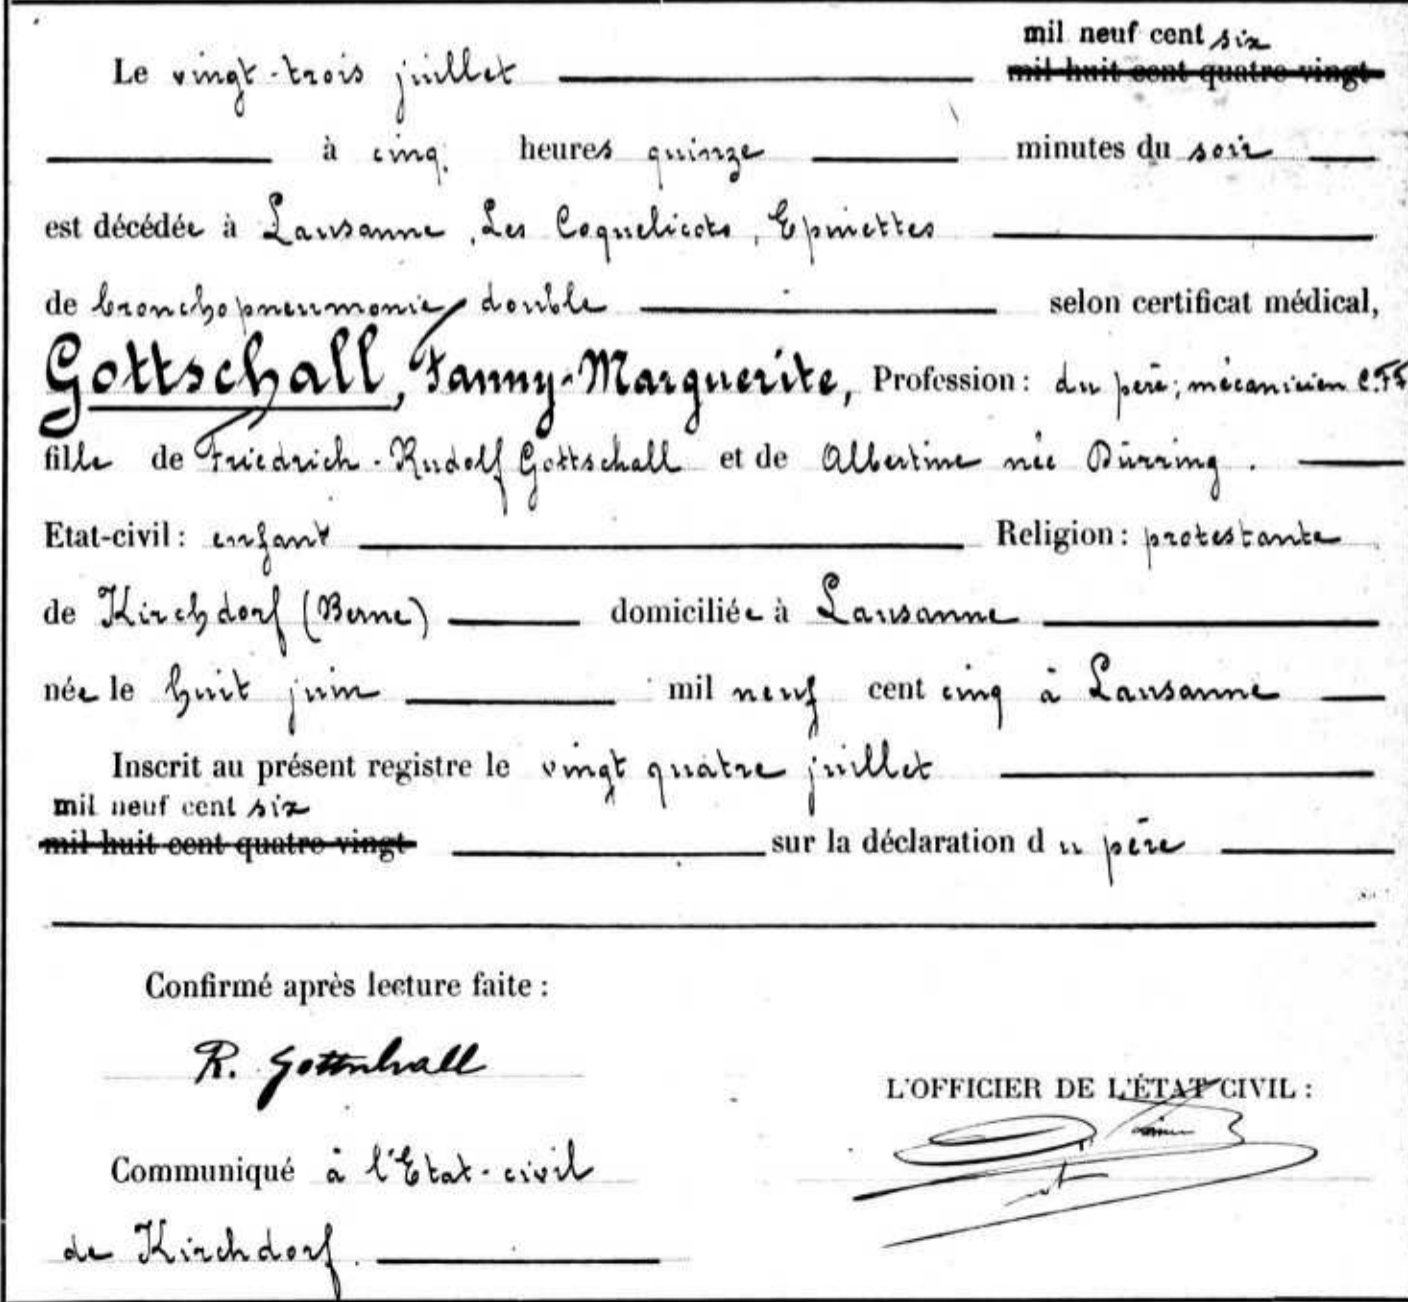 mil neuf cent six
Le vingt-trois juillet mil huit cent quatre-vingt
à cinq heures quinze minutes du soir
est décédée à Lausanne, Les Coquelicots, Epinettes
de bronchopneumonie double selon certificat médical,
Gottschall, Fanny-Marguerite, Profession: du père; mécanicien C.F.F
fille de Friedrich-Rudolf Gottschall et de Albertine née Dürring.
Etat-civil: enfant Religion: protestante
de Kirchdorf (Berne) domiciliée à Lausanne
née le huit juin mil neuf cent cinq à Lausanne
Inscrit au présent registre le vingt quatre juillet
mil neuf cent six
mil huit cent quatre-vingt sur la déclaration du père
Confirmé après lecture faite:
R. Gottschall
L'OFFICIER DE L'ÉTAT CIVIL:
Communiqué à l'Etat-civil
de Kirchdorf.